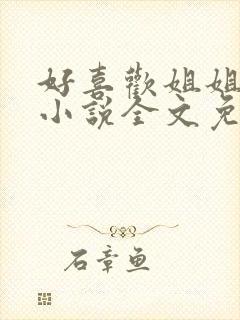 好喜歡姐姐
小說全文免
石章魚